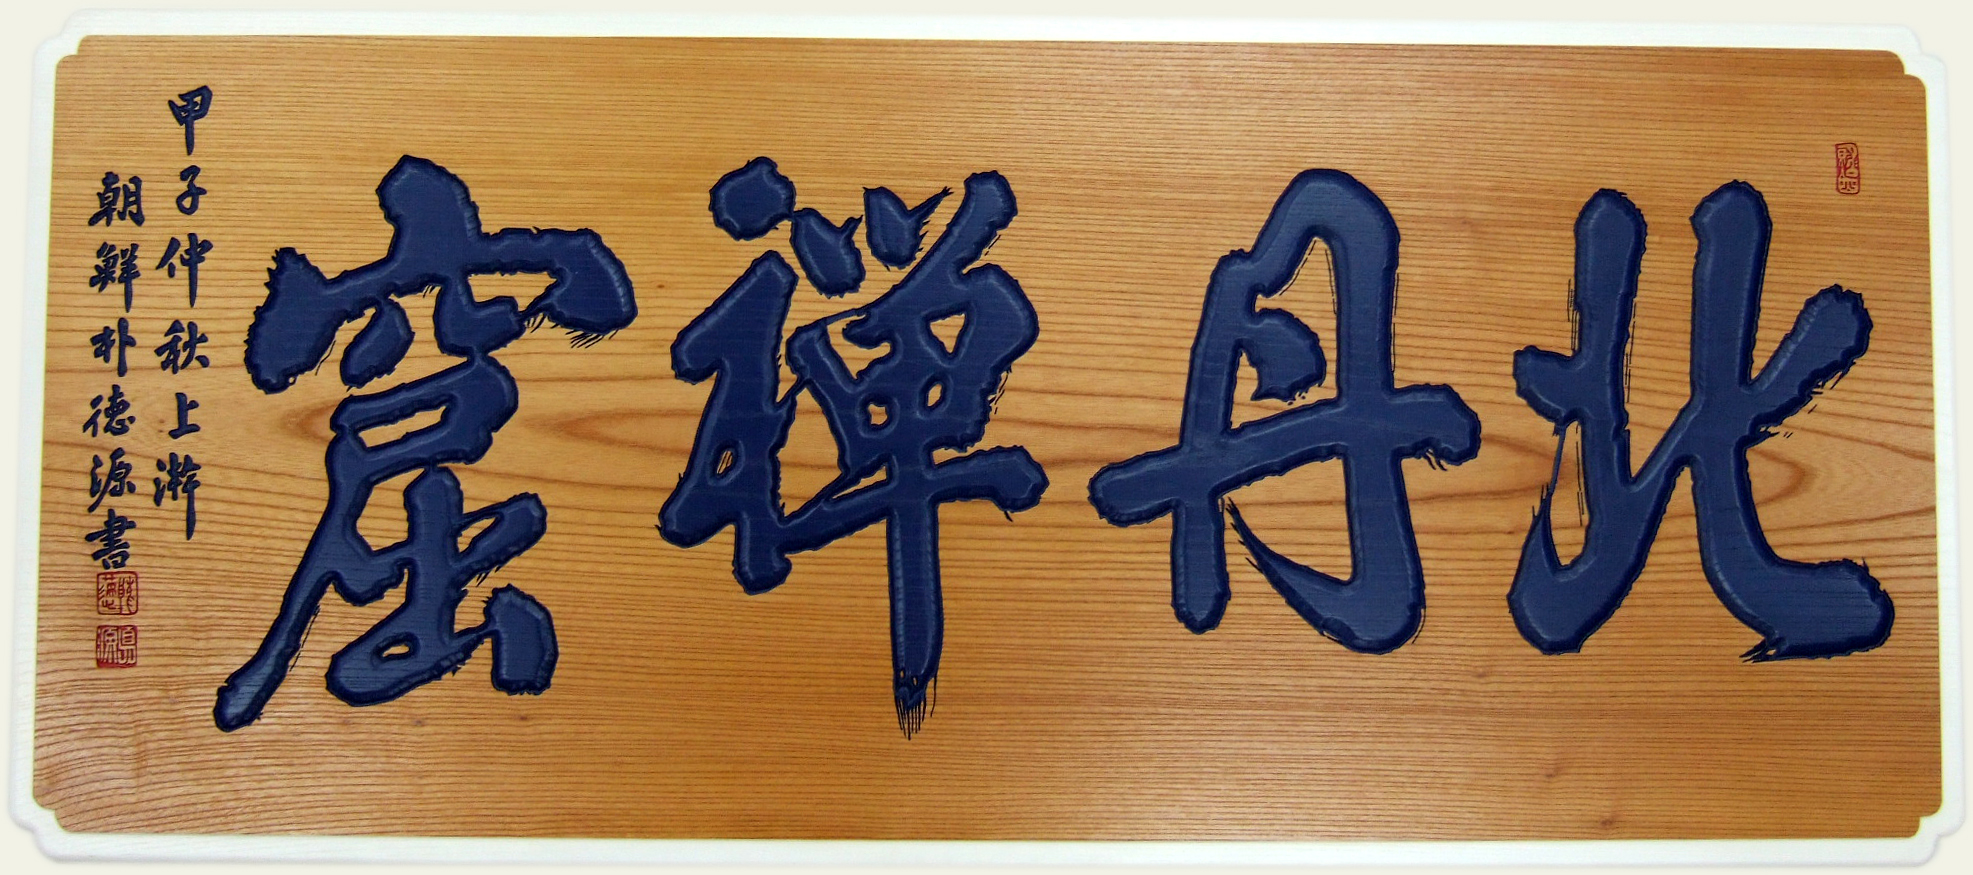 北丹禅窟
甲子仲秋上澣
朝鮮朴徳源書